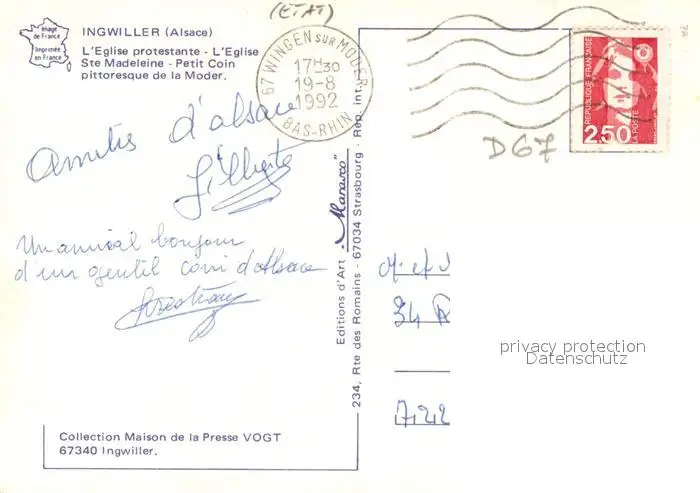 Image
de France
Imprimée
en France
INGWILLER (Alsace)
L'Eglise protestante - L'Eglise
Ste Madeleine - Petit Coin
pittoresque de la Moder.
(ETAT)
67 WINGEN SUR MODER
17H30
19-8
1992
BAS-RHIN
REPUBLIQUE FRANÇAISE
2,50
LA POSTE
D67
Amitiés d'alsace
Gilberte
Un amical bonjour
d'un gentil coin d'Alsace
Editions d'Art "Marasco"
234, Rte des Romains - 67034 Strasbourg - Rep. int.
M. et
34 R
722
privacy protection
Datenschutz
Collection Maison de la Presse VOGT
67340 Ingwiller.